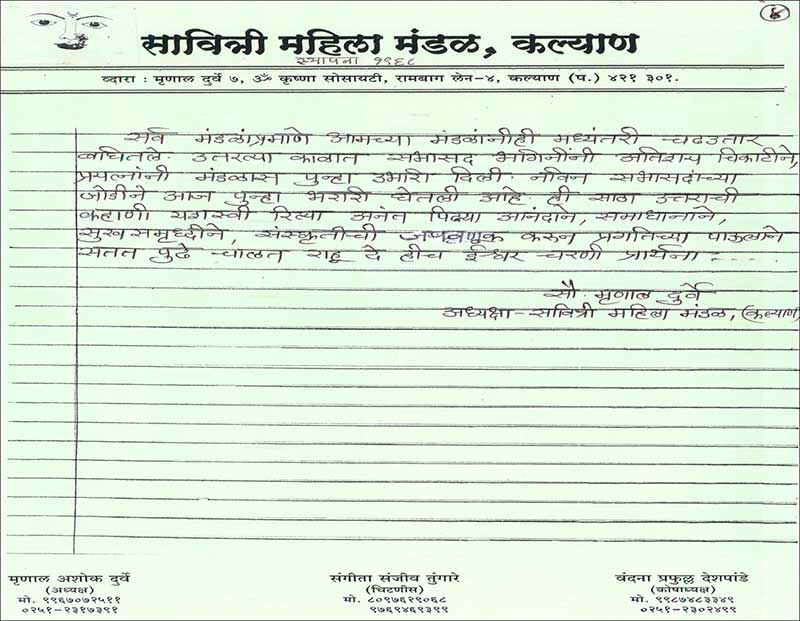 ४
सावित्री महिला मंडळ, कल्याण
स्थापना १९६८
व्दारा : मृणाल दुर्वे ७, ॐ कृष्णा सोसायटी, रामबाग लेन-४, कल्याण (प.) ४२१ ३०१.
सर्व मंडळांप्रमाणे आमच्या मंडळांनीही मध्यंतरी चढउतार
बघितले. उतरत्या काळात सभासद भगिनींनी अतिशय चिकाटीने,
प्रयत्नांनी मंडळास पुन्हा उभारी दिली. नविन सभासदांच्या
जोडीने आज पुन्हा भरारी घेतली आहे. ही साठा उत्तराची
कहाणी यशस्वी रित्या अनंत पिढ्या आनंदाने, समाधानाने,
सुखसमृध्दीने, संस्कृतीची जपवणूक करुन प्रगतिच्या पाऊलाने
सतत पुढे चालत राहू दे हीच ईश्वर चरणी प्रार्थना....
सौ. मृणाल दुर्वे
अध्यक्षा - सवित्री महिला मंडळ, (कल्याण)
मृणाल अशोक दुर्वे
(अध्यक्ष)
मो. ९९६७०७२५११
०२५१-२३१७३९१
संगीता संजीव तुंगारे
(चिटणीस)
मो. ८०९७६२९०६८
९७६९४६९३९९
वंदना प्रफुल्ल देशपांडे
(कोषाध्यक्ष)
मो. ९९८७४८३३४९
०२५१-२३०२४९९